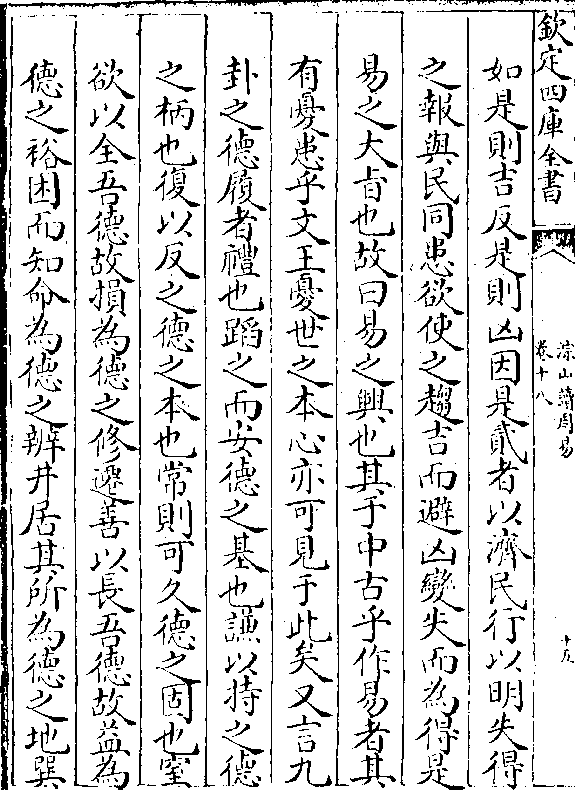 欽定四庫全書
涂山讀周易
卷十八
十九
如是則吉反是則凶因是貳者以濟民行以明失得
之報與民同患欲使之趨吉而避凶變失而為得是
易之大旨也故曰易之興也其于中古乎作易者其
有憂患乎文王憂世之本心亦可見于此矣又言九
卦之德履者禮也蹈之而安德之基也謙以持之德
之柄也復以反之德之本也常則可久德之固也窒
欲以全吾德故損為德之修遷善以長吾德故益為
德之裕困而知命為德之辨井居其所為德之地巽